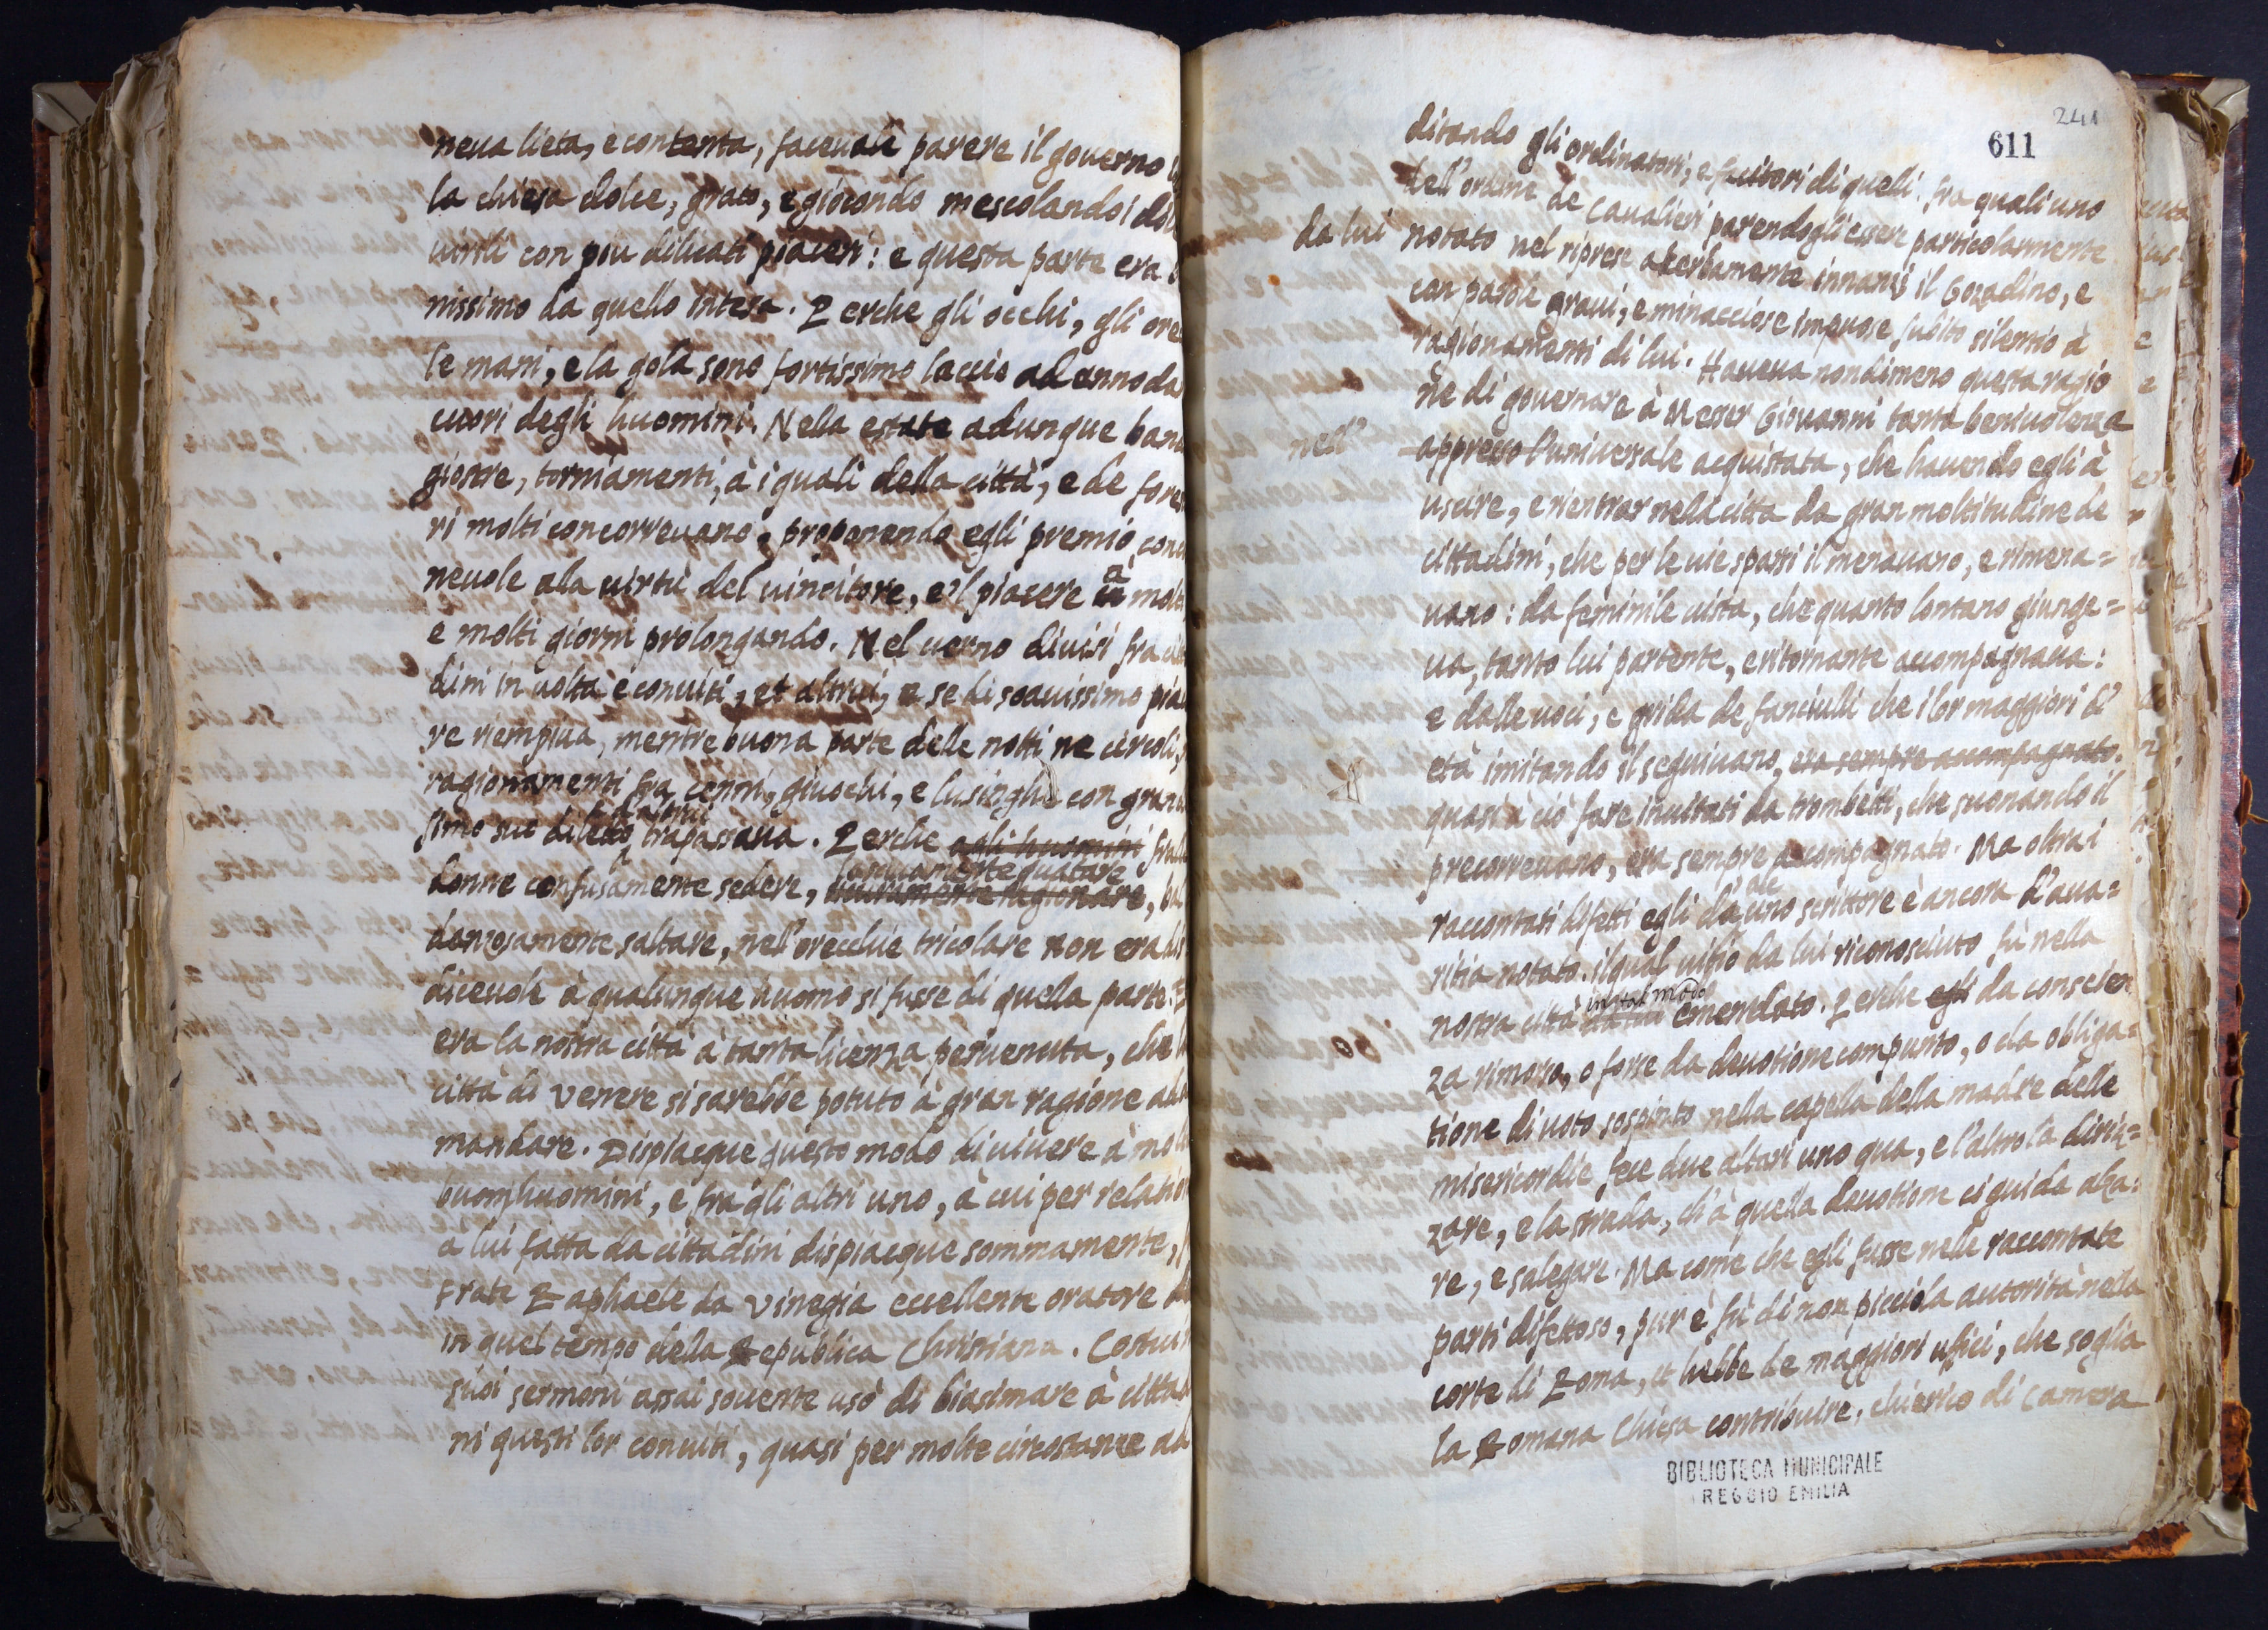 neua lieta, e contenta, faceuali parere il gouerno
la chiesa dolce, grato, e giocondo mescolando i
uirili con piu dilicati piaceri: e questa parte era
nissimo da quello intesa. Perche gli occhi, gli ore
le mani, e la gola sono fortissimo laccio ad annoda
cuori degli huomini. Nella estate adunque
giostre, torniamenti, à i quali della città, e de fore
ri molti concorreuano, proponendo egli premio
neuole ala uirtù del uincitore, e'l piacere à
e molti giorni prolongando. Nel uerno diuisi fra
dini in uolta e conuiti, et altrui, e se di soauissimo
re riempiua, mentre buona parte delle notti ne circoli,
ragionamenti fra cenni, giuochi, e lusinghe con
simo suo diletto trapassaua. Perche agli huomini
lasciuamente guatare
donne confusamente sedere, ragionare,
danzosamente saltare, nell'orecchie tricolare non era
diceuole à qualunque huomo si fusse di quella parte.
era la nostra città à tanta licenza peruenuta, che
città di Venere si sarebbe potuto à gran ragione
mandare. Dispiacque questo modo di uiuere à
buomhuomini, e fra gli altri uno, à cui per
à lui fatta da cittadini dispiacque sommamente,
frate Raphaele da Vinegia eccellente oratore
in quel tempo della Republica Christiana. Costui
suoi sermoni assai souente usò di biasimare à
ni questi lor conuiti, quasi per molte circostanze
241
611
ditando gli ordinatori, e facitori di quelli. fra quali uno
dell'ordine de Caualieri parendogli essere particolarmente
da lui notato nel riprese acerbamente innanzi il Gozadino, e
con parole graui, e minacciose impuose subito silentio à
ragionamenti di lui. Haueua nondimeno questa ragio
ne di gouernare à Messer Giouanni tanta beniuolenza
nell' appresso l'uniuersale acquistata, che hauendo egli à
uscire, e rientrar nella città da gran moltitudine de
cittadini, che per le uie sparsi il menauano, e rimena=
uano: da feminile uista, che quanto lontano giunge=
ua, tanto lui partente, e ritornante accompagnaua:
e dalle uoci, e grida de fanciulli che i lor maggiori d'
età imitando il seguiuano, era sempre accompagnato.
quasi à ciò fare inuitati da trombetti, che suonando il
precorreuano, era sempre accompagnato. Ma oltra i
raccontati difetti egli da uno scrittore è ancora d'aua=
ritia notato. il qual uitio da lui riconosciuto fù nella
in tal modo
nostra città da lui emendato. Perche egli da conscien
za rimorso, o forse da deuotione compunto, o da obliga=
tione di uoto sospinto nella capella della madre delle
misericordie fece due altari uno qua, e l'altro la diriz=
zare, e la strada, ch'à quella deuotione ci guida alza=
re, e salegare. Ma come che egli fusse nelle raccontate
parti difettoso, pur è fù di non picciola autorità nella
corte di Roma, et hebbe de maggiori ufici, che soglia
la Romana Chiesa contribuire, chierico di Camera
BIBLIOTECA MUNICIPALE
REGGIO EMILIA